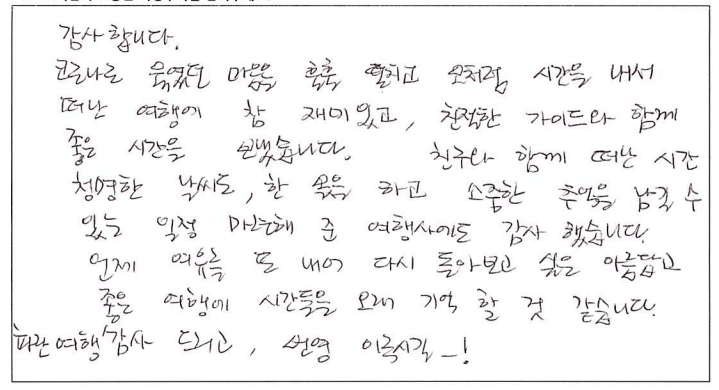 감사합니다.
코로나로 묶였던 마음을 훅훅 떨치고 모처럼 시간을 내서
떠난 여행에 참 재미있고, 친절한 가이드와 함께
좋은 시간을 보냈습니다. 친구와 함께 떠난 시간
청명한 날씨도, 한 몫을 하고 소중한 추억을 남길 수
있는 일정 마련해 준 여행사에도 감사 했습니다.
언제 여유를 또 내어 다시 돌아보고 싶은 아름답고
좋은 여행에 시간들을 오래 기억 할 것 같습니다.
'파란여행' 감사 드리고, 번영 이루시길 -!